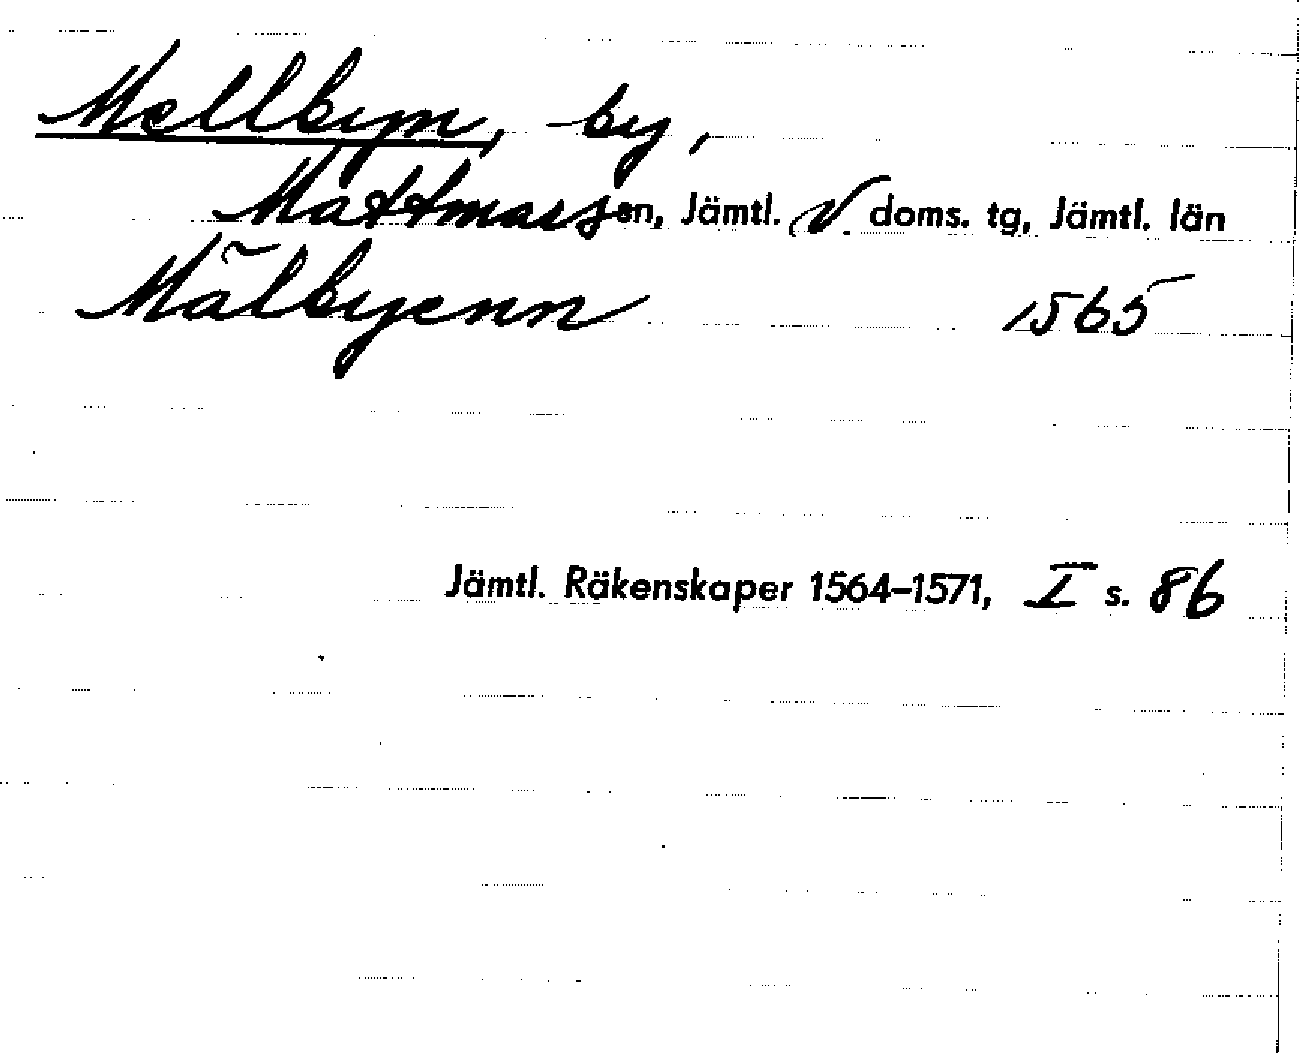 Mellbyn, by,
Mattmars sn, Jämtl. V. doms. tg, Jämtl. län
Mälbyenn 1565
Jämtl. Räkenskaper 1564–1571, I s. 86